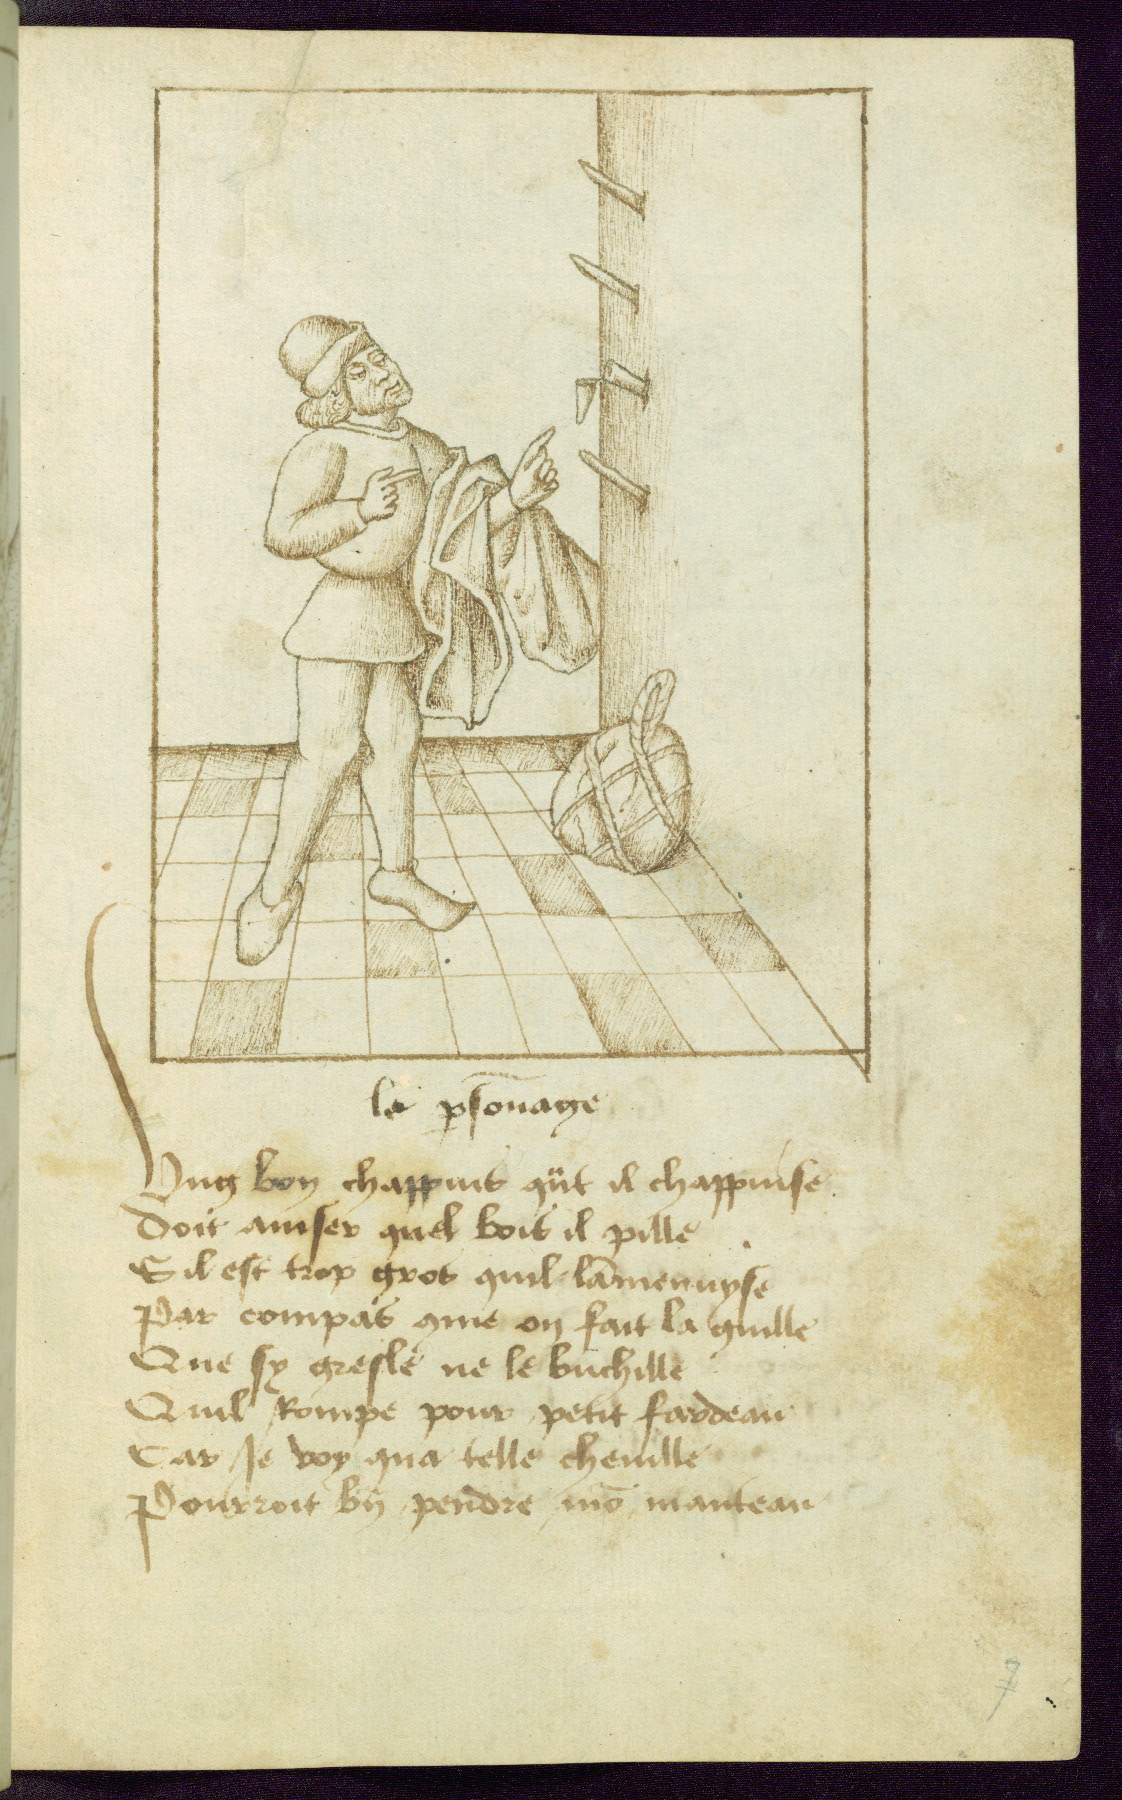 le p̄sonage
Ung bon chappuis qūt il chappuise
Doit auiser quel bois il pille
Sil est trop gros quil lam̄enuyse
Par compas que on fait la quille
Que sy gresle ne le buchille
Quil Rompe pour petit fardeau
Car Je voy qua telle cheuille
Pourroit bn̄ pendre mō manteau
7